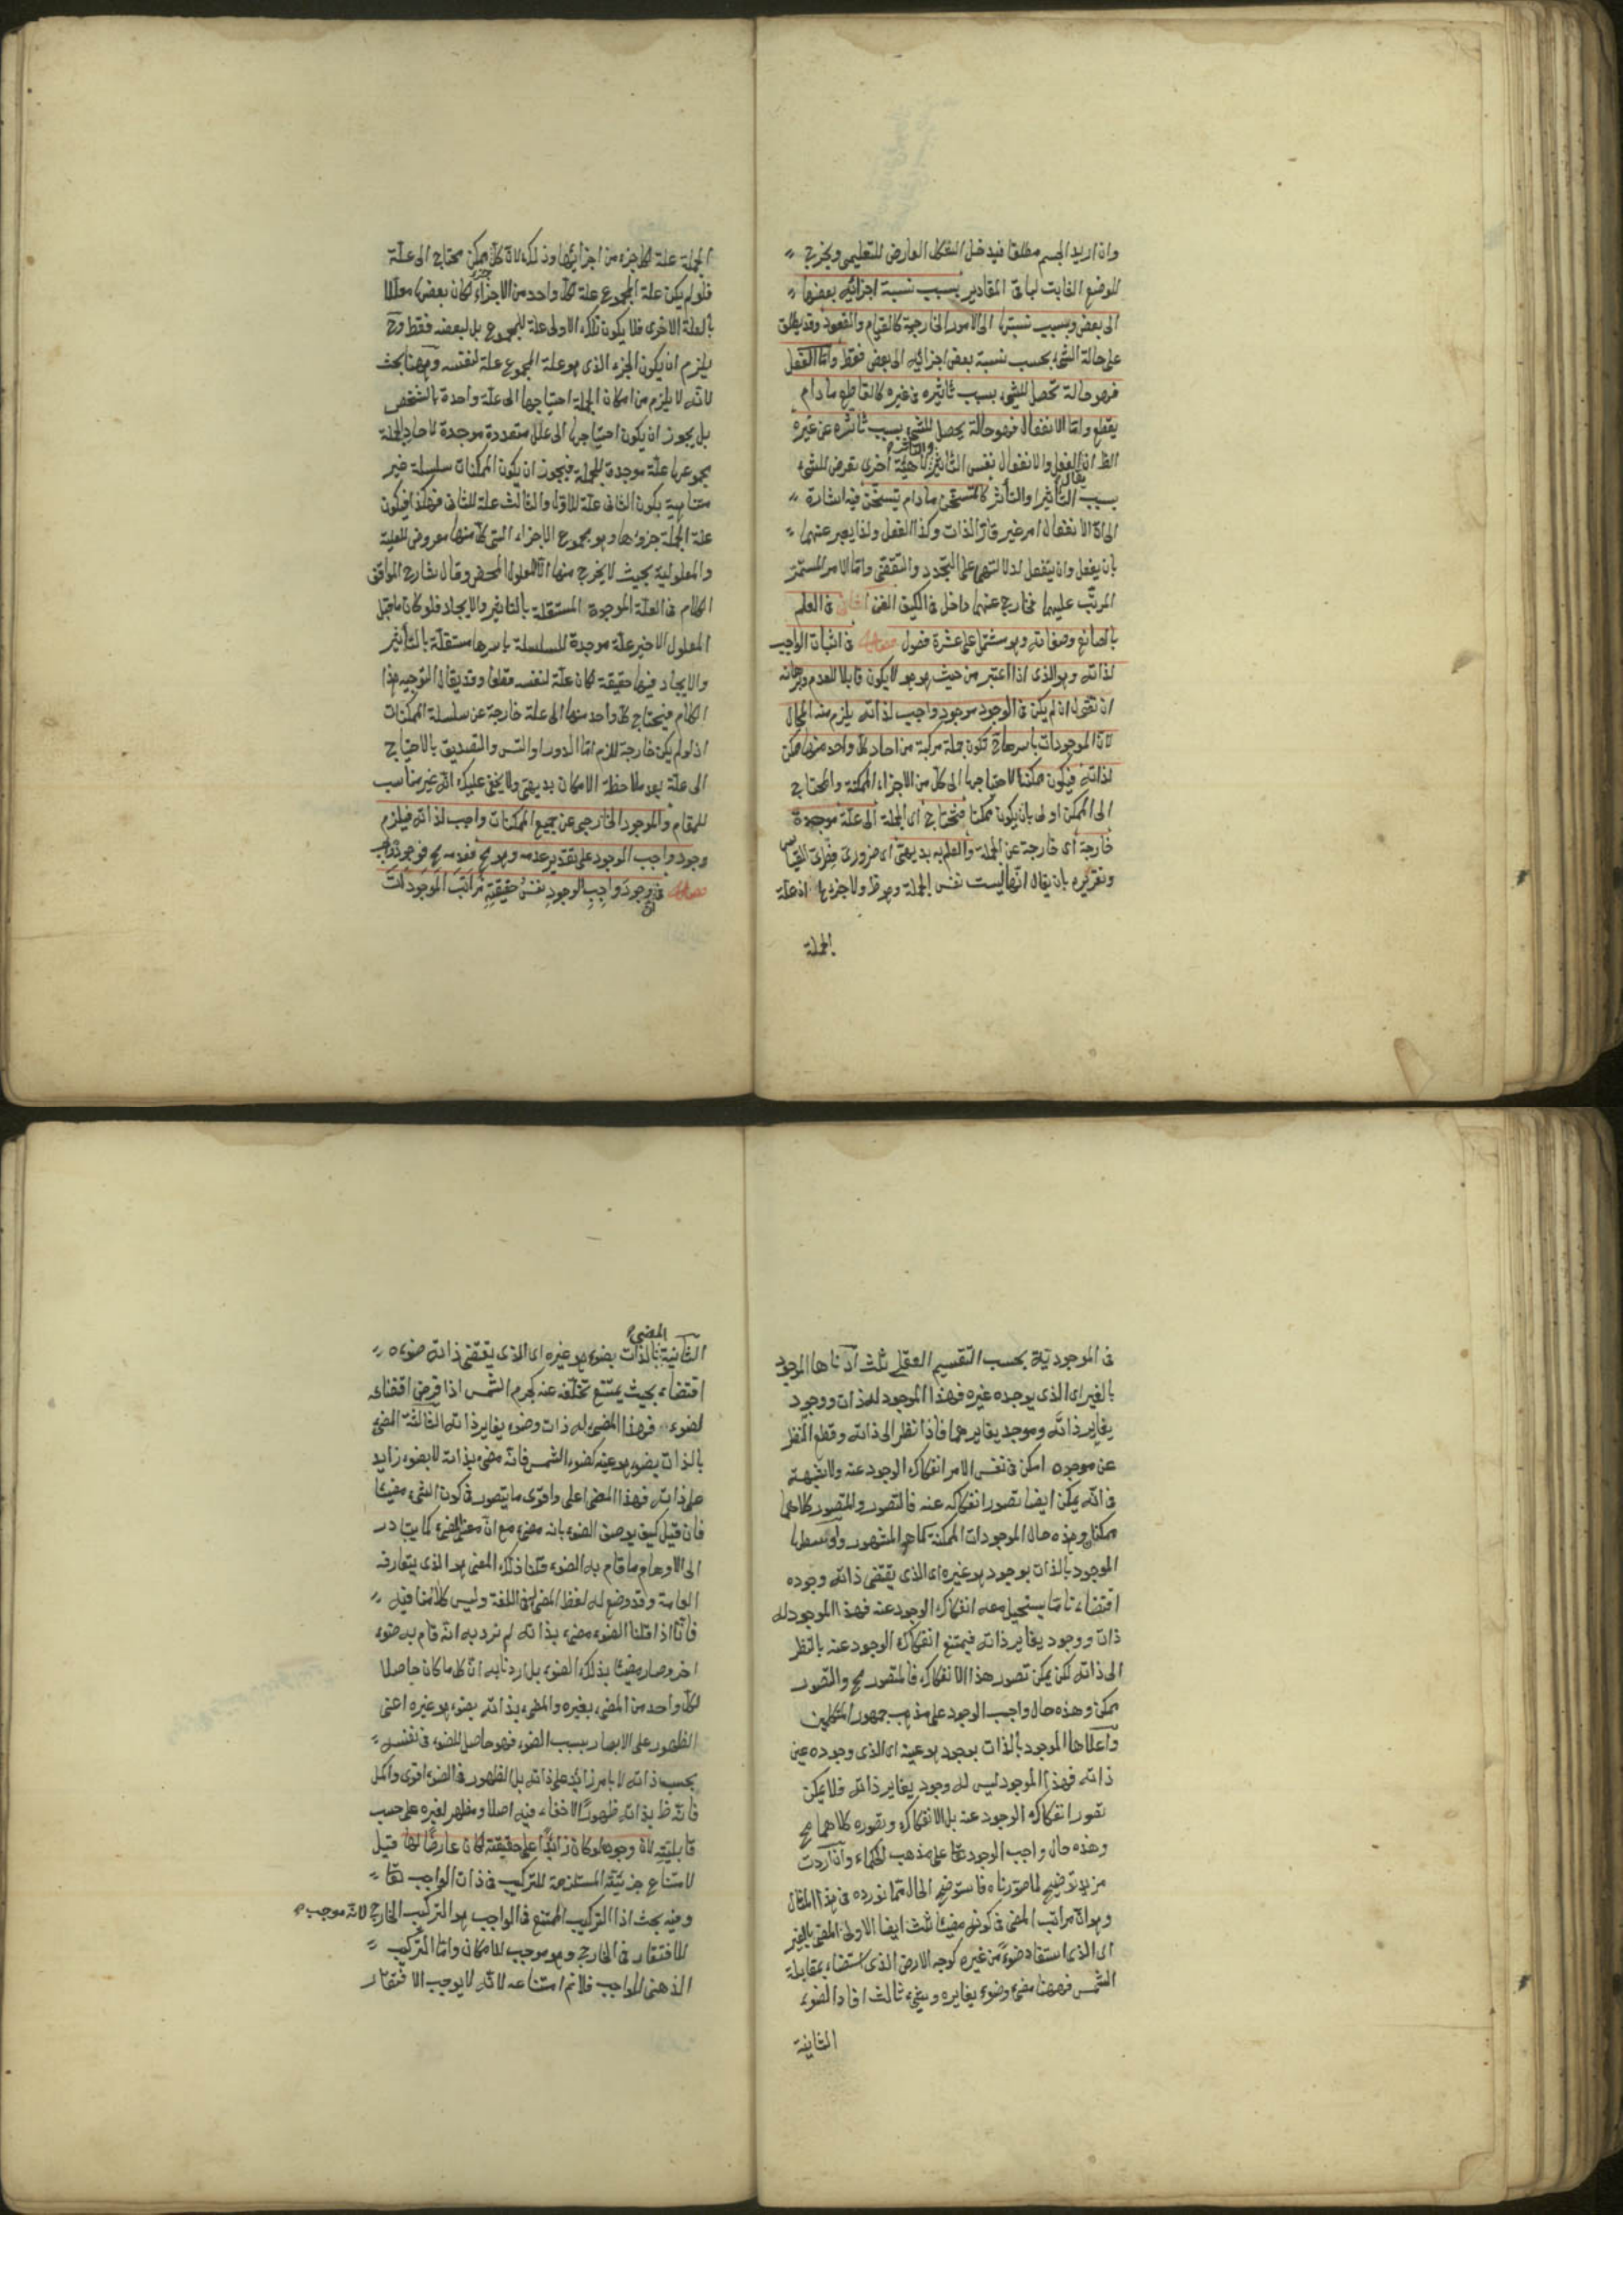 وان اريد الجسم مطلقا فيدخل الشكل العارض للتعليمى ويخرج
الوضع الثابت لباقى المقادير بسبب نسبة اجزائه بعضها
الى بعض وبسبب نسبتها الى الامور الخارجية كالقيام والقعود وقد يطلق
على حالة الشئ بحسب نسبة بعض اجزائه الى بعض فقط واما الفعل
فهو حالة تحصل للشئ بسبب تاثيره فى غيره كالقاطع ما دام
يقطع واما الانفعال فهو حالة يحصل للشئ بسبب تاثره عن غيره
الظ ان الفعل والانفعال نفس التاثير والتأثر لا هيئة اخرى تعرض للشئ
بسبب التأثير والتأثر كالمتسخن ما دام يتسخن فيه اشارة
الى ان الانفعال امر غير قار الذات وكذا الفعل ولذا يعبر عنهما
بان يفعل وان ينفعل لدلالتهما على التجدد والتقضى واما الامر المستمر
المرتب عليهما فخارج عنهما داخل فى الكيف الفن الثانى فى العلم
بالصانع وصفاته وهو مشتمل على عشرة فصول فصل فى اثبات الواجب
لذاته وهو الذى اذا اعتبر من حيث هو هو لا يكون قابلا للعدم وبرهانه
ان نقول ان لم يكن فى الوجود موجود واجب لذاته يلزم منه المحال
لان الموجودات باسرها ح تكون جملة مركبة من احاد كل واحد منها ممكن
لذاته فيكون ممكنا لاحتياجها الى كل من الاجزاء الممكنة والمحتاج
الى الممكن اولى بان يكون ممكنا فتحتاج اى الجملة الى علة موجدة
خارجة اى خارجة عن الجملة والعلم به بديهى اى ضرورى فطرى القياس
وتقريره بان يقال انها ليست نفس الجملة وهو ظ ولا جزءها اذ علة
الجملة
الجملة علة لكل جزء من اجزائها وذلك لان كل ممكن محتاج الى علة
فلو لم يكن علة المجموع علة كل واحد من الاجزاء لكان بعضها معللا
بالعلة الاخرى فلا يكون تلك الاولى علة للمجموع بل لبعضه فقط وح
يلزم ان يكون الجزء الذى هو علة المجموع علة لنفسه وههنا بحث
لانه لا يلزم من امكان الجملة احتياجها الى علة واحدة بالشخص
بل يجوز ان يكون احتياجها الى علل متعددة موجدة لاحاد الجملة
مجموعها علة موجدة للجملة فيجوز ان يكون الممكنات سلسلة غير
متناهية يكون الثانى علة للاول والثالث علة للثانى فهكذا فيكون
علة الجملة جزؤها وهو مجموع الاجزاء التى كل منها معروض للعلية
والمعلولية بحيث لا يخرج منها الا المعلول المحض وقال شارح المواقف
الكلام فى العلة الموجدة المستقلة بالتاثير والايجاد فلو كان ما قبل
المعلول الاخير علة موجدة للسلسلة باسرها مستقلة بالتأثير
والايجاد فيها حقيقة لكان علة لنفسه قطعا وقد يقال لتوجيه هذا
الكلام فيحتاج كل واحد منها الى علة خارجة عن سلسلة الممكنات
اذ لو لم يكن خارجة للزم اما الدور او التس والتصديق بالاحتياج
الى علة بعد ملاحظة الامكان بديهى ولا يخفى عليك انه غير مناسب
للمقام والموجود الخارجى عن جميع الممكنات واجب لذاته فيلزم
وجود واجب الوجود على تقدير عدمه وهو مح فعدمه مح فوجوده واجب
فصل فى ان وجود واجب الوجود نفس حقيقته مراتب الموجودات
فى الموجودية بحسب التقسيم العقلى ثلث ادناها الموجود
بالغير اى الذى يوجده غيره فهذا الموجود له ذات ووجود
يغاير ذاته وموجد يغايرهما فاذا نظر الى ذاته وقطع النظر
عن موجده امكن فى نفس الامر انفكاك الوجود عنه ولا شبهة
فى انه يمكن ايضا تصور انفكاكه عنه فالتصور والمتصور كلاهما
ممكن وهذه حال الموجودات الممكنة كما هو المشهور واوسطها
الموجود بالذات بوجود هو غيره اى الذى يقتضى ذاته وجوده
اقتضاء تاما يستحيل معه انفكاك الوجود عنه فهذا الموجود له
ذات ووجود يغاير ذاته فيمتنع انفكاك الوجود عنه بالنظر
الى ذاته لكن يمكن تصور هذا الانفكاك فالمتصور مح والتصور
ممكن وهذه حال واجب الوجود على مذهب جمهور المتكلمين
واعلاها الموجود بالذات بوجود هو عينه اى الذى وجوده عين
ذاته فهذا الموجود ليس له وجود يغاير ذاته فلا يمكن
تصور انفكاك الوجود عنه بل الانفكاك وتصوره كلاهما مح
وهذه حال واجب الوجود تعا على مذهب الحكماء وان اردت
مزيد توضيح لما صورناه فاستوضح الحال مما نورده فى هذا المثال
وهو ان مراتب المضئ فى كونه مضيئا ثلث ايضا الاولى المضئ بالغير
اى الذى استفاد ضوءه من غيره كوجه الارض الذى استضاء بمقابلة
الشمس فههنا مضئ وضوء يغايره وشئ ثالث افاد الضوء
الثانية
الثانية المضئ بالذات بضوء هو غيره اى الذى يقتضى ذاته ضوءه
اقتضاء بحيث يمتنع تخلفه عنه كجرم الشمس اذا فرض اقتضائه
لضوءه فهذا المضئ له ذات وضوء يغاير ذاته الثالثة المضئ
بالذات بضوء هو عينه كضوء الشمس فانه مضئ بذاته لا بضوء زايد
على ذاته فهذا المضئ اعلى واقوى ما يتصور فى كون الشئ مضيئا
فان قيل كيف يوصف الضوء بانه مضئ مع ان معنى المضئ كما يتبادر
الى الاوهام ما قام به الضوء قلنا ذلك المعنى هو الذى يتعارفه
العامة وقد وضع له لفظ المضئ فى اللغة وليس كلامنا فيه
فانا اذا قلنا الضوء مضئ بذاته لم نرد به انه قام به ضوء
اخر وصار مضيئا بذلك الضوء بل اردنا به ان كل ما كان حاصلا
لكل واحد من المضئ بغيره والمضئ بذاته بضوء هو غيره اعنى
الظهور على الابصار بسبب الضوء فهو حاصل للضوء فى نفسه
بحسب ذاته لا بامر زائد على ذاته بل الظهور فى الضوء اقوى واكمل
فانه ظ بذاته ظهورا لا خفاء فيه اصلا ومظهر لغيره على حسب
قابليته لان وجوده لو كان زايدا على حقيقته لكان عارضا لها قيل
لامتناع جزئيته المستلزمة للتركيب فى ذات الواجب تعا
وفيه بحث اذ التركيب الممتنع فى الواجب هو التركيب الخارجى لانه موجب
للافتقار فى الخارج وهو موجب للامكان واما التركيب
الذهنى للواجب فلانم امتناعه لانه لا يوجب الافتقار